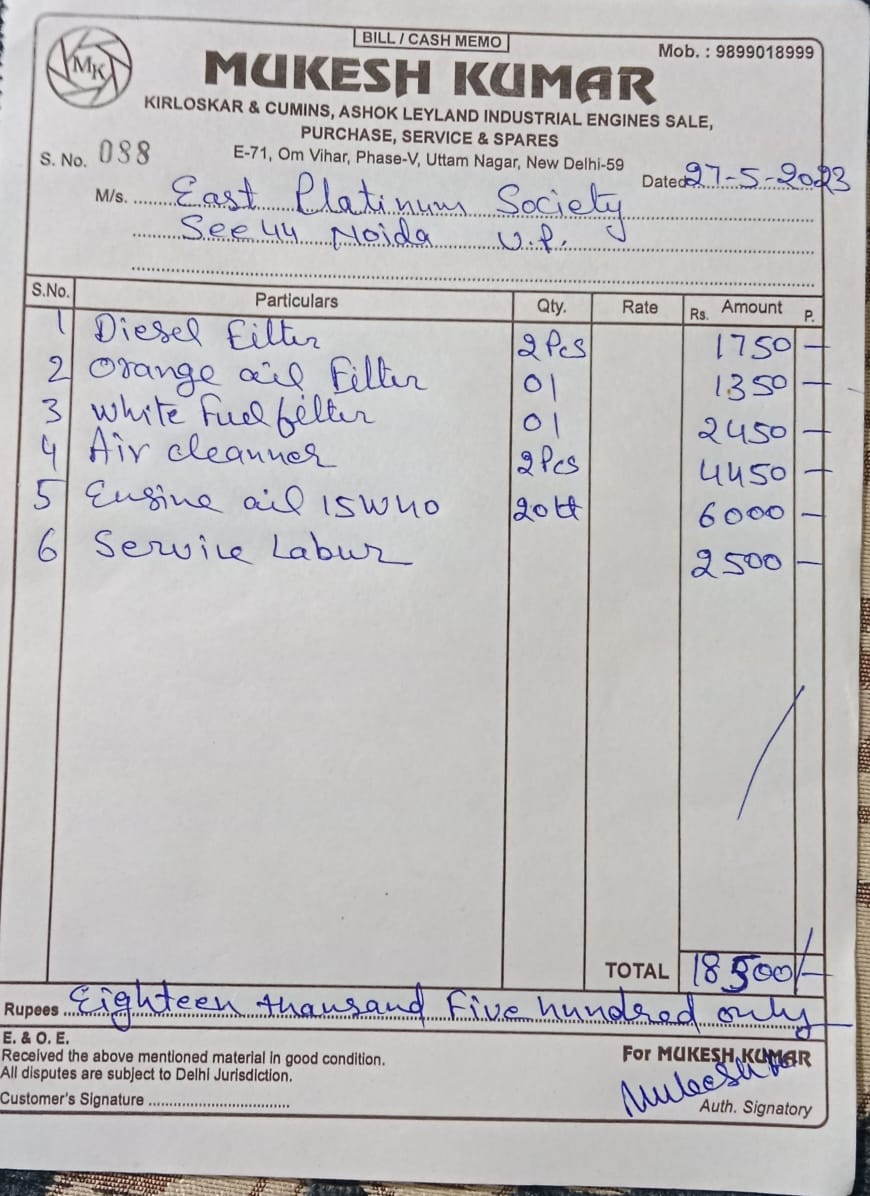 BILL / CASH MEMO
Mob. : 9899018999
MK
MUKESH KUMAR
KIRLOSKAR & CUMINS, ASHOK LEYLAND INDUSTRIAL ENGINES SALE,
PURCHASE, SERVICE & SPARES
E-71, Om Vihar, Phase-V, Uttam Nagar, New Delhi-59
S. No. 088
Dated 27-5-2023
M/s. East Platinum Society
See 44 Noida U.P.
S.No. Particulars Qty. Rate Rs. Amount P.
1 Diesel Filter 2 Pcs 1750 —
2 Orange oil Filter 01 1350 —
3 White Fuel filter 01 2450 —
4 Air cleanner 2 Pcs 4450 —
5 Engine oil 15W40 20 Lt 6000 —
6 Service Labur 2500 —
TOTAL 18500/-
Rupees Eighteen thausand Five hundred only
E. & O. E.
Received the above mentioned material in good condition.
All disputes are subject to Delhi Jurisdiction.
For MUKESH KUMAR
Mukesh
Customer's Signature
Auth. Signatory